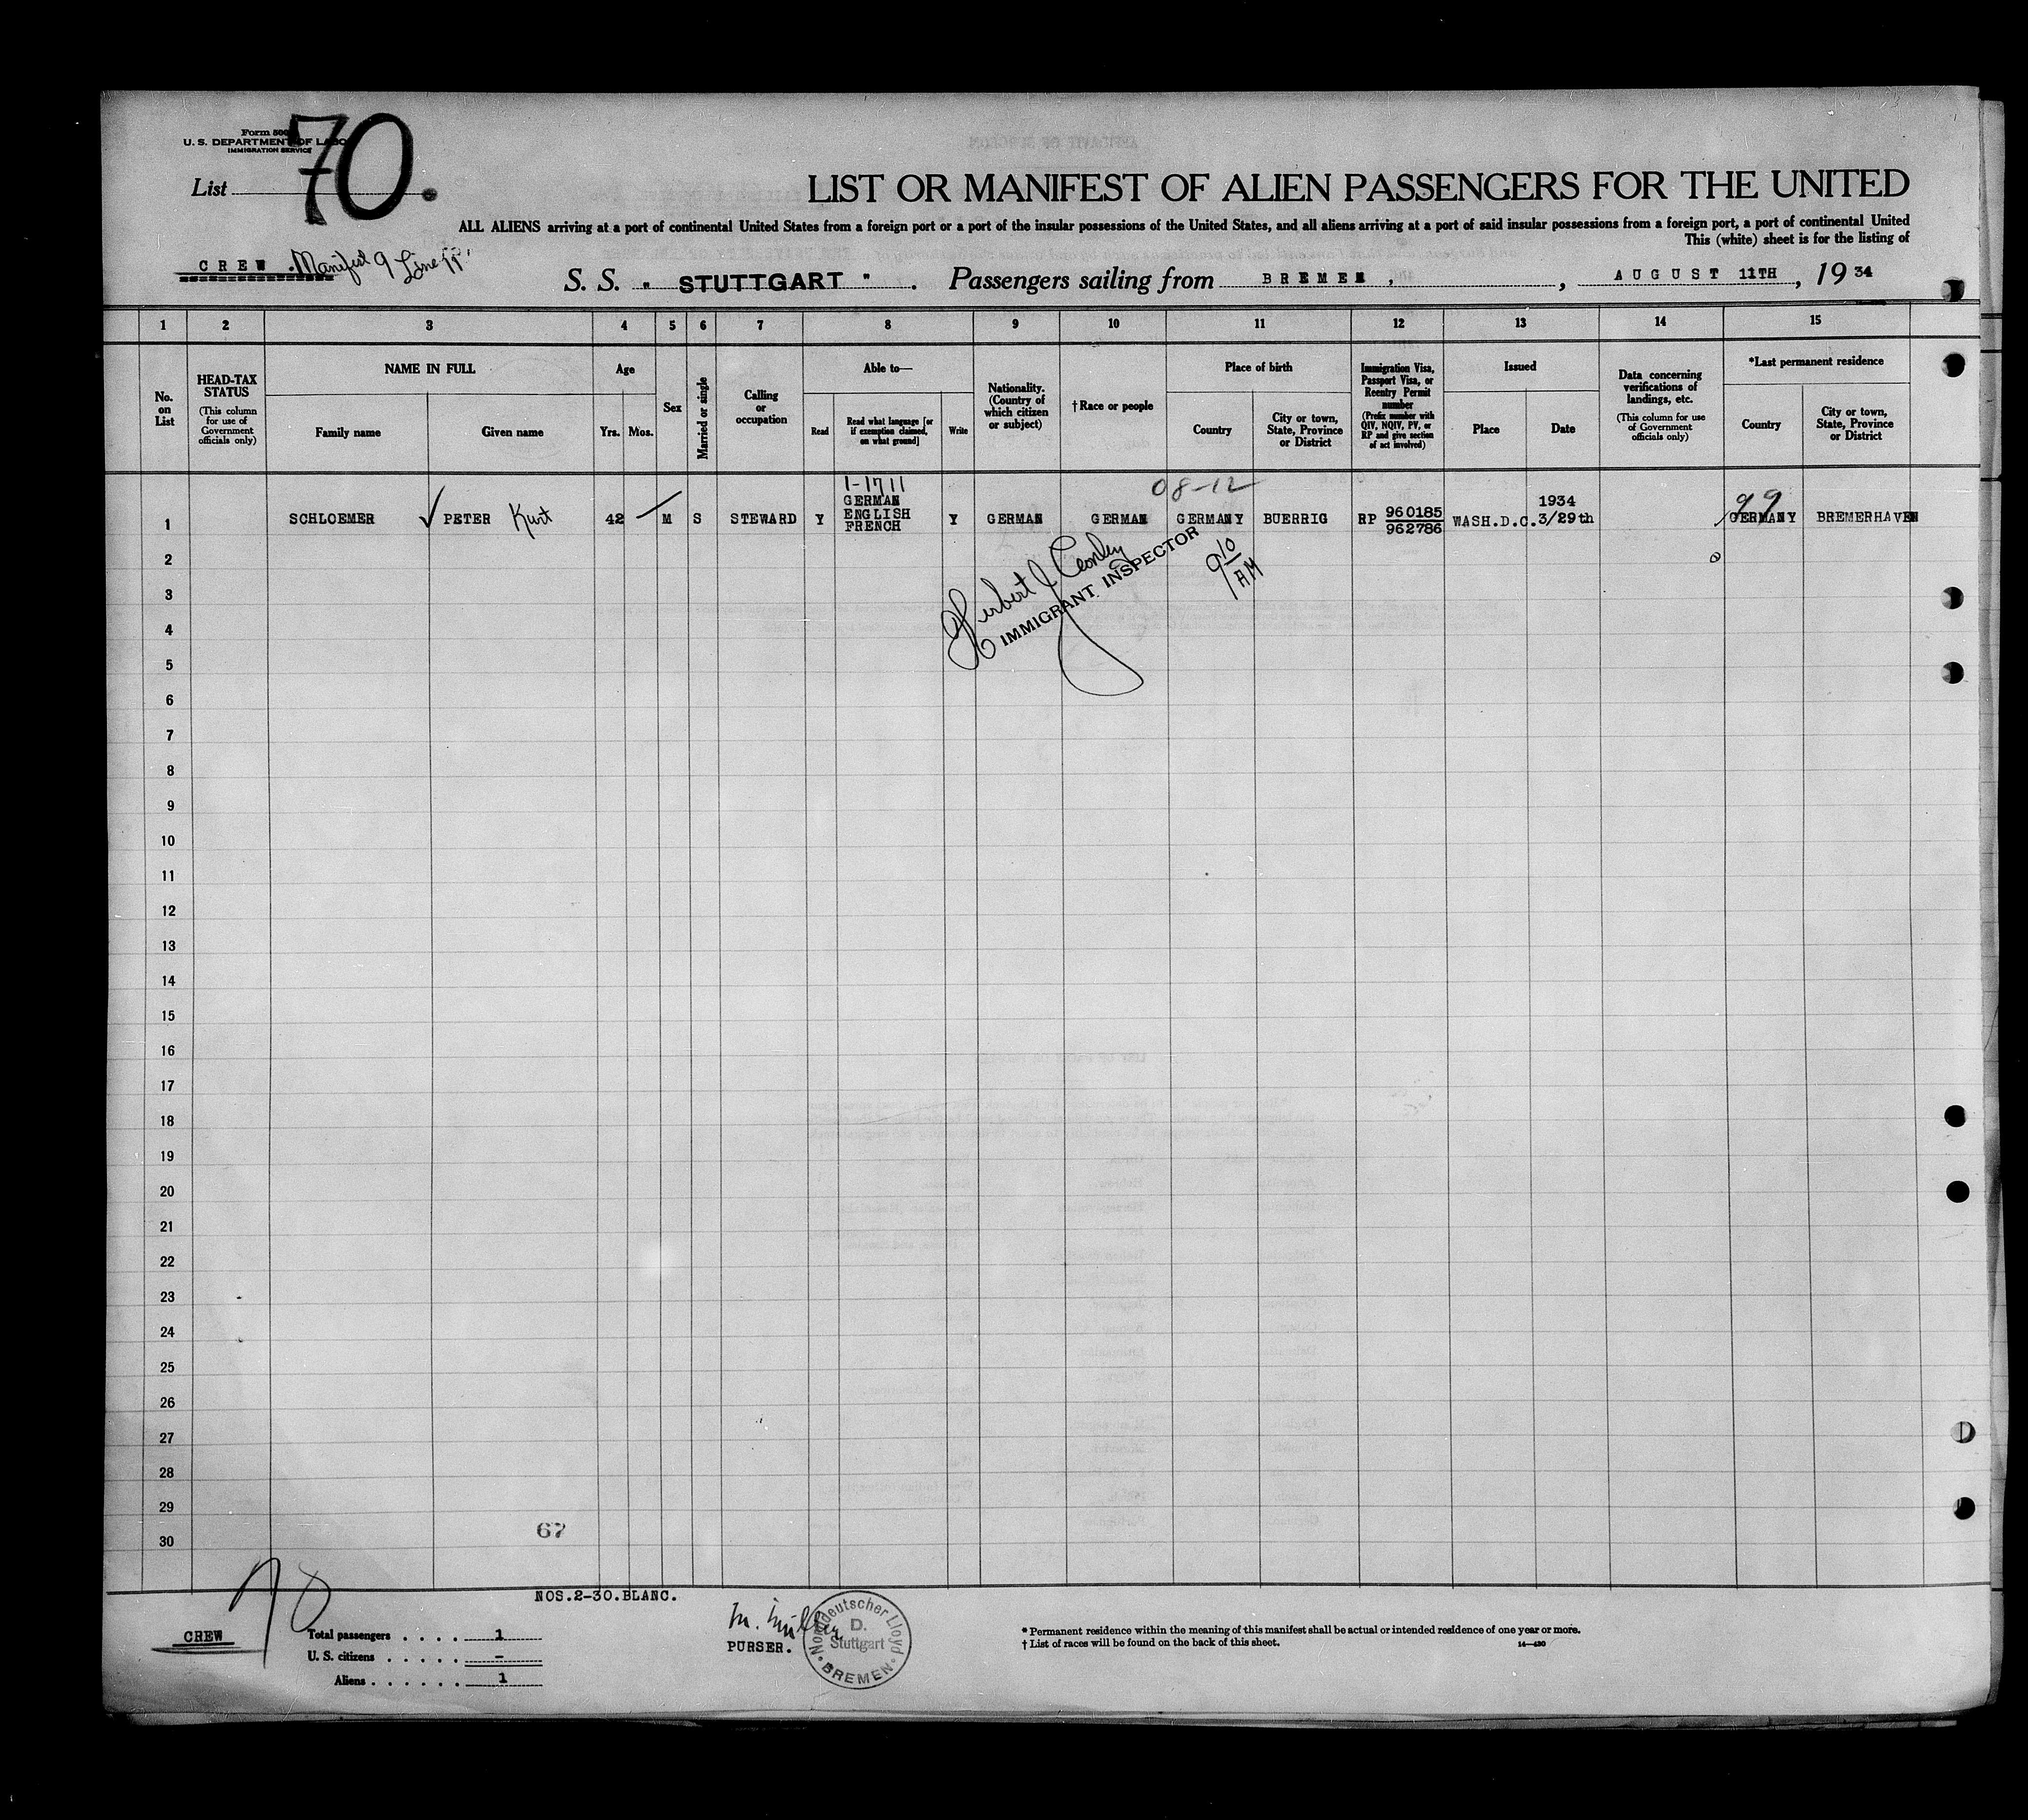 Form 500
U. S. DEPARTMENT OF LABOR
IMMIGRATION SERVICE
List 70.
LIST OR MANIFEST OF ALIEN PASSENGERS FOR THE UNITED
ALL ALIENS arriving at a port of continental United States from a foreign port or a port of the insular possessions of the United States, and all aliens arriving at a port of said insular possessions from a foreign port, a port of continental United
This (white) sheet is for the listing of
CREW. Manifest 9 Line
S. S. " STUTTGART " . Passengers sailing from BREMEN, , AUGUST 11TH , 19 34
1 2 3 4 5 6 7 8 9 10 11 12 13 14 15
No. on List
HEAD-TAX STATUS
(This column for use of Government officials only)
NAME IN FULL
Family name Given name
Age
Yrs. Mos.
Sex
Married or single
Calling or occupation
Able to—
Read
Read what language [or if exemption claimed, on what ground]
Write
Nationality. (Country of which citizen or subject)
†Race or people
Place of birth
Country
City or town, State, Province or District
Immigration Visa, Passport Visa, or Reentry Permit number
(Prefix number with QIV, NQIV, PV, or RP and give section of act involved)
Issued
Place Date
Data concerning verifications of landings, etc.
(This column for use of Government officials only)
*Last permanent residence
Country
City or town, State, Province or District
1-1711
08-12
99
1 SCHLOEMER ✓ PETER Kurt 42 M S STEWARD Y GERMAN ENGLISH FRENCH Y GERMAN GERMAN GERMANY BUERRIG RP 960185 962786 WASH.D.C. 1934 3/29th GERMANY BREMERHAVEN
Herbert J
IMMIGRANT INSPECTOR
9 10 AM
2
3
4
5
6
7
8
9
10
11
12
13
14
15
16
17
18
19
20
21
22
23
24
25
26
27
28
29
30
67
70
NOS.2-30.BLANC.
CREW
Total passengers . . . . 1
U. S. citizens . . . . . -
Aliens . . . . . . 1
M. Müller
PURSER.
Norddeutscher Lloyd
D.
Stuttgart
BREMEN
* Permanent residence within the meaning of this manifest shall be actual or intended residence of one year or more.
† List of races will be found on the back of this sheet.
14—430